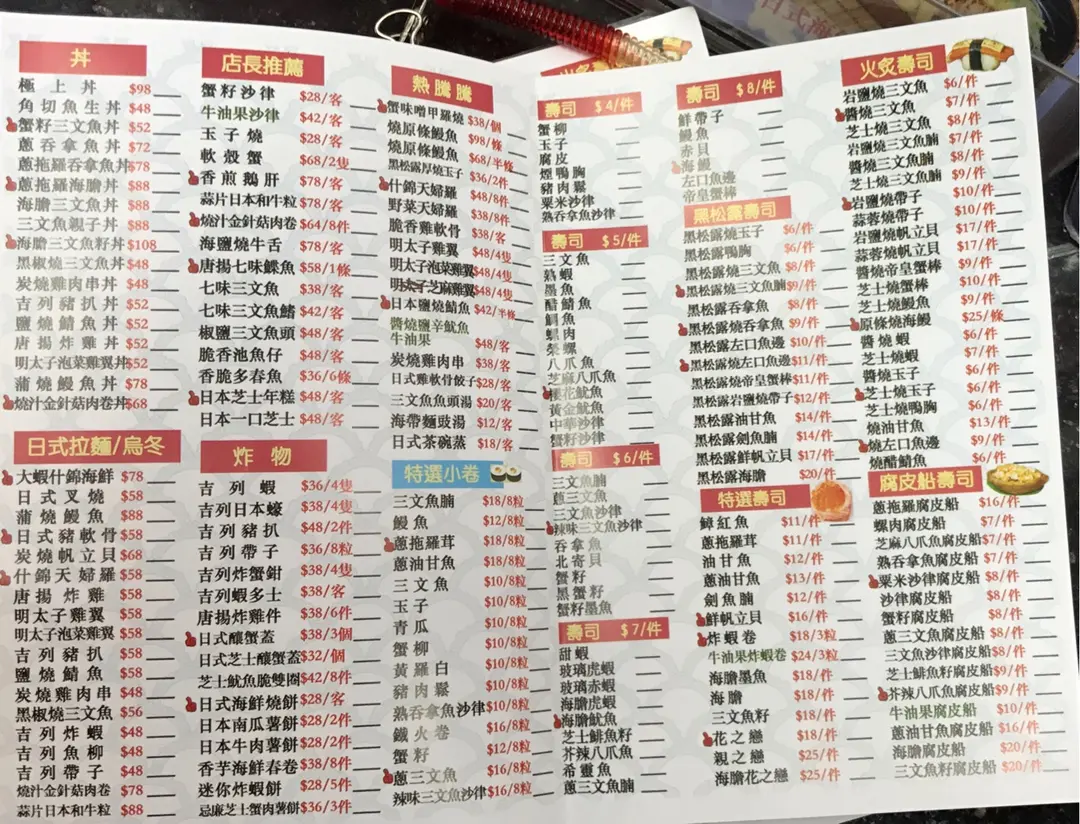 丼
極上丼 $98
角切魚生丼 $48
蟹籽三文魚丼 $52
蔥吞拿魚丼 $72
蔥拖羅吞拿魚丼 $78
蔥拖羅海膽丼 $88
海膽三文魚丼 $88
三文魚親子丼 $88
海膽三文魚籽丼 $108
黑椒燒三文魚丼 $48
炭燒雞肉串丼 $48
吉列豬扒丼 $52
鹽燒鯖魚丼 $52
唐揚炸雞丼 $52
明太子泡菜雞翼丼 $52
蒲燒鰻魚丼 $78
燒汁金針菇肉卷丼 $68
日式拉麵/烏冬
大蝦什錦海鮮 $78
日式叉燒 $58
蒲燒鰻魚 $88
日式豬軟骨 $58
炭燒帆立貝 $68
什錦天婦羅 $58
唐揚炸雞 $58
明太子雞翼 $58
明太子泡菜雞翼 $58
吉列豬扒 $58
鹽燒鯖魚 $58
炭燒雞肉串 $48
黑椒燒三文魚 $56
吉列炸蝦 $48
吉列魚柳 $48
吉列帶子 $48
燒汁金針菇肉卷 $78
蒜片日本和牛粒 $88
店長推薦
蟹籽沙律 $28/客
牛油果沙律 $42/客
玉子燒 $28/客
軟殼蟹 $68/2隻
香煎鵝肝 $78/客
蒜片日本和牛粒 $78/客
燒汁金針菇肉卷 $64/8件
海鹽燒牛舌 $78/客
唐揚七味鰈魚 $58/1條
七味三文魚 $38/客
七味三文魚鰭 $42/客
椒鹽三文魚頭 $48/客
脆香池魚仔 $48/客
香脆多春魚 $36/6條
日本芝士年糕 $48/客
日本一口芝士 $48/客
炸物
吉列蝦 $36/4隻
吉列日本蠔 $38/4隻
吉列豬扒 $48/2件
吉列帶子 $36/8粒
吉列炸蟹鉗 $38/4隻
吉列蝦多士 $38/客
唐揚炸雞件 $38/6件
日式釀蟹蓋 $38/3個
日式芝士釀蟹蓋 $32/個
芝士魷魚脆雙圈 $42/8件
日式海鮮燒餅 $28/客
日本南瓜薯餅 $28/2件
日本牛肉薯餅 $28/2件
香芋海鮮春卷 $38/8件
迷你炸蝦餅 $28/5件
忌廉芝士蟹肉薯餅 $36/3件
熱騰騰
蟹味噌甲羅燒 $38/個
燒原條鰻魚 $98/條
燒原條鰻魚 $68/半條
黑松露厚燒玉子 $36/2件
什錦天婦羅 $48/8件
野菜天婦羅 $38/8件
脆香雞軟骨 $38/客
明太子雞翼 $48/4隻
明太子泡菜雞翼 $48/4隻
明太子芝麻雞翼 $48/4隻
日本鹽燒鯖魚 $42/半條
醬燒鹽辛魷魚
牛油果 $48/客
炭燒雞肉串 $38/客
日式雞軟骨餃子 $28/客
三文魚魚頭湯 $20/客
海帶麵豉湯 $12/客
日式茶碗蒸 $18/客
特選小卷
三文魚腩 $18/8粒
鰻魚 $12/8粒
蔥拖羅茸 $18/8粒
蔥油甘魚 $18/8粒
三文魚 $10/8粒
玉子 $10/8粒
青瓜 $10/8粒
蟹柳 $10/8粒
黃羅白 $10/8粒
豬肉鬆 $10/8粒
熟吞拿魚沙律 $10/8粒
鐵火卷 $16/8粒
蟹籽 $12/8粒
蔥三文魚 $16/8粒
辣味三文魚沙律 $16/8粒
壽司 $4/件
蟹柳
玉子
腐皮
煙鴨胸
豬肉鬆
粟米沙律
熟吞拿魚沙律
壽司 $5/件
三文魚
熟蝦
墨魚
醋鯖魚
鯛魚
螺肉
八爪魚
芝麻八爪魚
櫻花魷魚
黃金魷魚
中華沙律
蟹籽沙律
壽司 $6/件
三文魚腩
蔥三文魚
三文魚沙律
辣味三文魚沙律
吞拿魚
北寄貝
蟹籽
黑蟹籽
蟹籽墨魚
壽司 $7/件
甜蝦
玻璃虎蝦
玻璃赤蝦
海膽虎蝦
海膽魷魚
芝士鯡魚籽
芥辣八爪魚
希靈魚
蔥三文魚腩
壽司 $8/件
鮮帶子
鰻魚
赤貝
海鰻
左口魚邊
帝皇蟹棒
黑松露壽司
黑松露燒玉子 $6/件
黑松露鴨胸 $6/件
黑松露燒三文魚 $8/件
黑松露燒三文魚腩 $9/件
黑松露吞拿魚 $8/件
黑松露燒吞拿魚 $9/件
黑松露左口魚邊 $10/件
黑松露燒左口魚邊 $11/件
黑松露燒帝皇蟹棒 $11/件
黑松露岩鹽燒帶子 $12/件
黑松露油甘魚 $14/件
黑松露劍魚腩 $14/件
黑松露鮮帆立貝 $17/件
黑松露海膽 $20/件
特選壽司
鱆紅魚 $11/件
蔥拖羅茸 $11/件
油甘魚 $12/件
蔥油甘魚 $13/件
劍魚腩 $12/件
鮮帆立貝 $16/件
炸蝦卷 $18/3粒
牛油果炸蝦卷 $24/3粒
海膽墨魚 $18/件
海膽 $18/件
三文魚籽 $18/件
花之戀 $18/件
親之戀 $25/件
海膽花之戀 $25/件
火炙壽司
岩鹽燒三文魚 $6/件
醬燒三文魚 $7/件
芝士燒三文魚 $8/件
岩鹽燒三文魚腩 $7/件
醬燒三文魚腩 $8/件
芝士燒三文魚腩 $9/件
岩鹽燒帶子 $10/件
蒜蓉燒帶子 $10/件
岩鹽燒帆立貝 $17/件
蒜蓉燒帆立貝 $17/件
醬燒帝皇蟹棒 $9/件
芝士燒蟹棒 $10/件
芝士燒鰻魚 $9/件
原條燒海鰻 $25/條
醬燒蝦 $6/件
芝士燒蝦 $7/件
醬燒玉子 $6/件
芝士燒玉子 $6/件
芝士燒鴨胸 $6/件
燒油甘魚 $13/件
燒左口魚邊 $9/件
燒醋鯖魚 $6/件
腐皮壽司船
蔥拖羅腐皮船 $16/件
螺肉腐皮船 $7/件
芝麻八爪魚腐皮船 $7/件
熟吞拿魚腐皮船 $7/件
粟米沙律腐皮船 $8/件
沙律腐皮船 $8/件
蟹籽腐皮船 $8/件
蔥三文魚腐皮船 $8/件
三文魚沙律腐皮船 $8/件
芝士鯡魚籽腐皮船 $9/件
芥辣八爪魚腐皮船 $9/件
牛油果腐皮船 $10/件
蔥油甘魚腐皮船 $16/件
海膽腐皮船 $20/件
三文魚籽腐皮船 $20/件